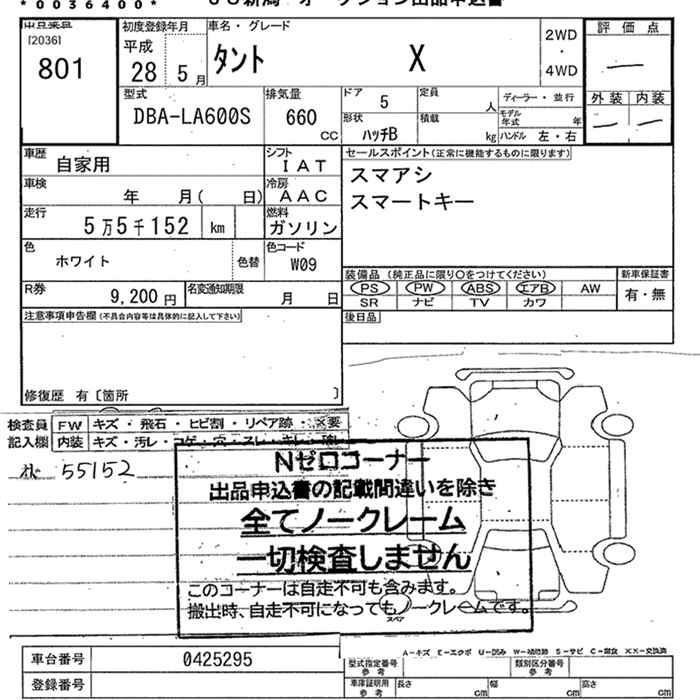 *0036400*
出品申込書
[2036]
801
初度登録年月
平成
28 5月
車名・グレード
タント X
2WD
・
4WD
評価点
―
外装 内装
― ―
型式
DBA-LA600S
排気量
660
CC
ドア 5
定員 人
ディーラー・並行
モデル年式 年
形状
ハッチB
積載 kg
ハンドル 左・右
車歴
自家用
シフト
IAT
セールスポイント(正常に機能するものに限ります)
スマアシ
スマートキー
車検
年 月( 日)
冷房
AAC
走行
5万5千152 km
燃料
ガソリン
色
ホワイト
色替
色コード
W09
装備品(純正品に限り○をつけてください)
新車保証書
PS PW ABS エアB AW
SR ナビ TV カワ
有・無
R券
9,200円
名変通知期限
月 日
注意事項申告欄(不具合内容等は具体的に記入して下さい)
後日品
修復歴 有〔箇所 〕
検査員
記入欄
FW キズ・飛石・ヒビ割・リペア跡・×要
内装 キズ・汚レ・コゲ・穴・スレ・キレ・
55152
Nゼロコーナー
出品申込書の記載間違いを除き
全てノークレーム
一切検査しません
このコーナーは自走不可も含みます。
搬出時、自走不可になってもノークレームです。
スペア
A-キズ E-エクボ U-凹み W-補修跡 S-サビ C-腐食 XX-交換済
車台番号 0425295
登録番号
型式指定番号
参考
類別区分番号
参考
車庫証明用
参考
長さ cm 幅 cm 高さ cm